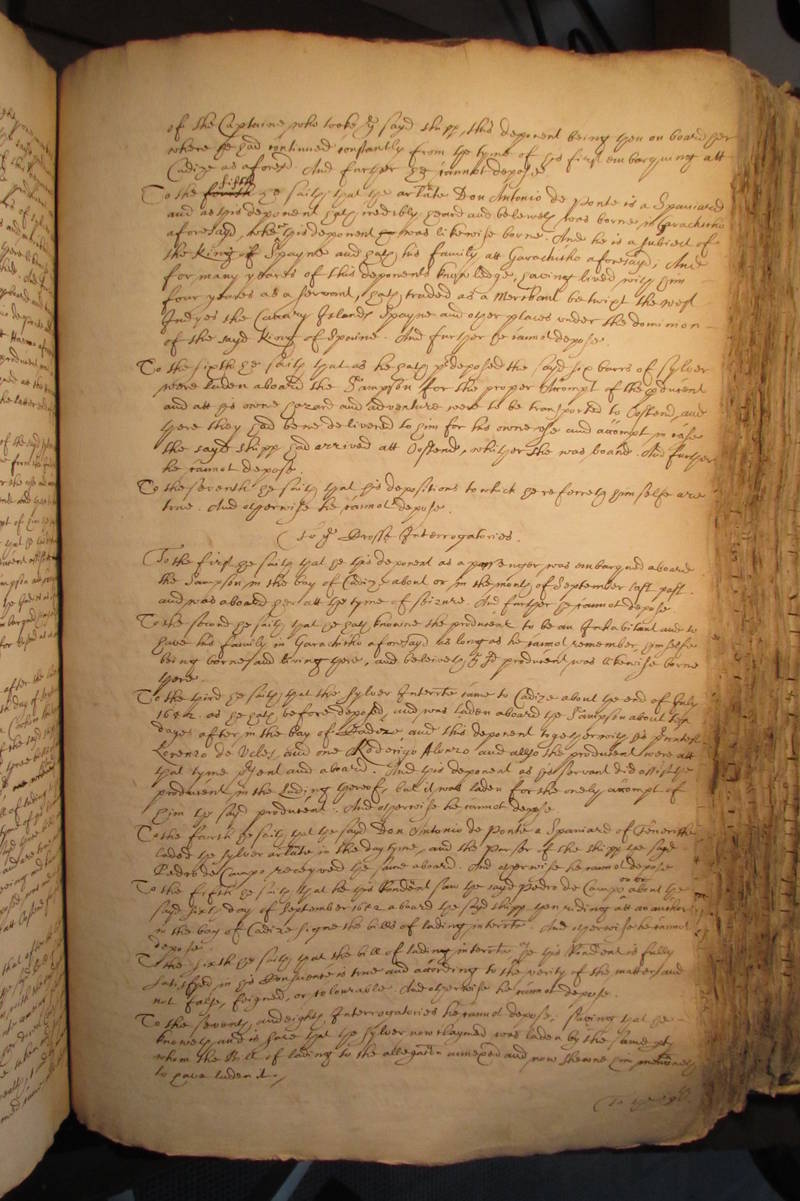 of the Captaine who tooke ye sayd shipp, this deponent being then on board her
where hee had continued constantly from the tyme of his first embarquing att
Cadize as aforesd And further hee cannot depose
To the fifth hee saith that the arlate Don Antonio de Ponte is a Spaniard
and as this deponent hath credibly heard and beleeveth was borne in Garachicho
aforesayd, where this deponent was likewise borne. And he is a subiect of
the King of Spayne and hath his family att Garachicho aforesayd, And
for many yeares of this deponents knowledge, having lived with him
four yeares as a servant, hath traded as a Merchant betwixt the west
Indyes the Canary Islands Spayne and other places under the dominion
of the sayd King of Spaine. And further he cannot depose.
To the sixth hee saith that as he hath predeposed the sayd six barrs of sylver
were laden aboard the Sampson for the proper accompt of the producent
and att his owne hazard and adventure were to be transported to Ostend, and
there they had bene delivered to him for his owne use and accompt in case
the sayd shipp had arrived att Ostend, whither she was bound. And further
he cannot depose.
To the seventh hee saith that his depositions to which hee referreth himselfe are
true. And otherwise he cannot depose.
To ye Crosse Interrogatories.
To the first hee saith that hee this deponent as a passenger was embarqued aboard
the Sampson in the bay of Cadize about or in the month of September last past.
and was aboard her att the tyme of seizure. And further he cannot depose
To the second hee saith that hee hath knowne the producent to be an Inhabitant and to
have his family in Garachicho aforesayd as long as he cannot remember, himselfe
being borne and living there, and beleiveth ye sd producent was likewise borne
there.
To the third hee saith that the sylver Interrte came to Cadize about the end of July
1652. as hee hath before deposed, and was laden aboard the Sampson about six
dayes after in the bay of Cadize, and this deponent together with his
Lorenzo de Veles, and one Roderigo Alonzo and allso the producent were att
that tyme present and aboard. And this deponent as his servant did assist the
producent in the lading thereof, but it was laden for the onely accompt of
him the sayd producent. And otherwise he cannot depose.
To the fourth hee saith that the sayd Don Antonio de Ponte a Spaniard of Teneriffe
laded the sylver arlate in the day tyme, and the Purser of the shipp the sayd
Pedro de Campo receyved the same aboard. And otherwise he cannot depose
To the fifth hee saith that he this Rendent saw the sayd Pedro de Campo on or about the
sayd sixth day of September 1652 aboard the sayd shipp then riding att an anchor
in the bay of Cadize signe the bills of lading interrte. And otherwise he cannot
depose.
To the sixth hee saith that the bill of lading interrte hee this Rendent is fully
satisfied in his Conscience is true and according to the verity of the matter, and
not false, feigned, or colourable. And otherwise he cannot depose.
To the seventh and eighth Interrogatories he cannot depose, saving that he
knoweth and is sure that the sylver now claymed was laden by the same pty
whom the Bill of lading to the allegation annexed and now shewne him
to have laden it.
To the 9th